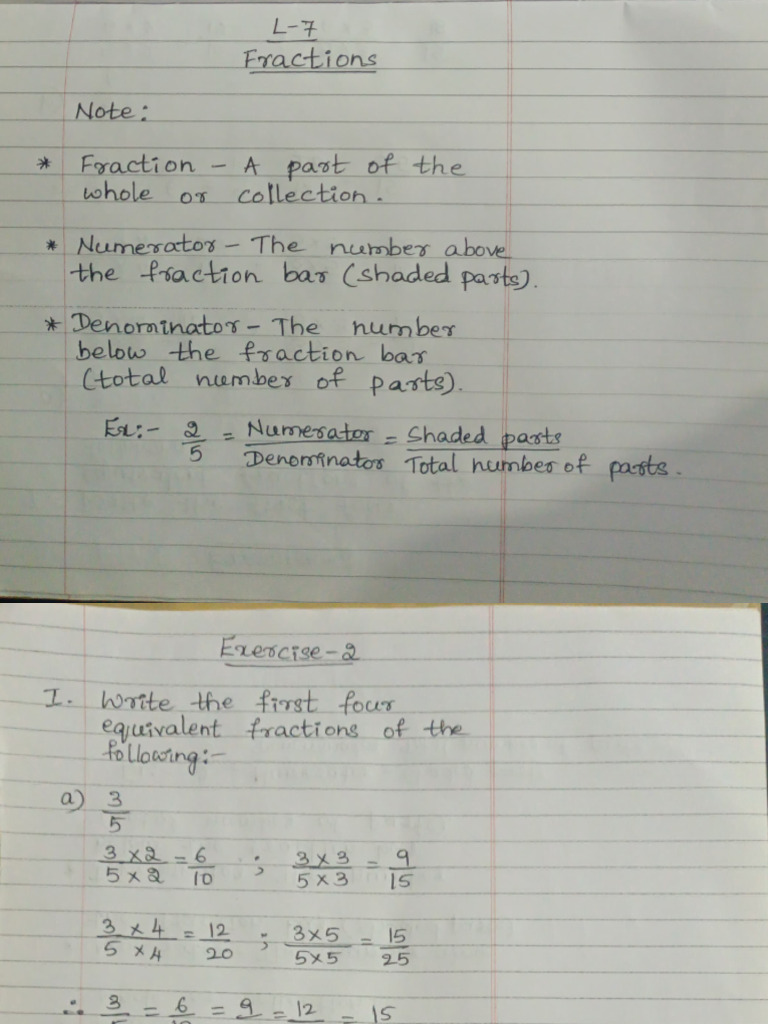 L-7
Fractions
Note:
* Fraction - A part of the
whole or collection.
* Numerator - The number above
the fraction bar (shaded parts).
* Denominator - The number
below the fraction bar
(total number of parts).
Ex:- 2/5 = Numerator/Denominator = Shaded parts/Total number of parts.
Exercise-2
I. Write the first four
equivalent fractions of the
following:-
a) 3/5
3 x 2/5 x 2 = 6/10 ; 3 x 3/5 x 3 = 9/15
3 x 4/5 x 4 = 12/20 ; 3x5/5x5 = 15/25
∴ 3 = 6 = 9 = 12 = 15